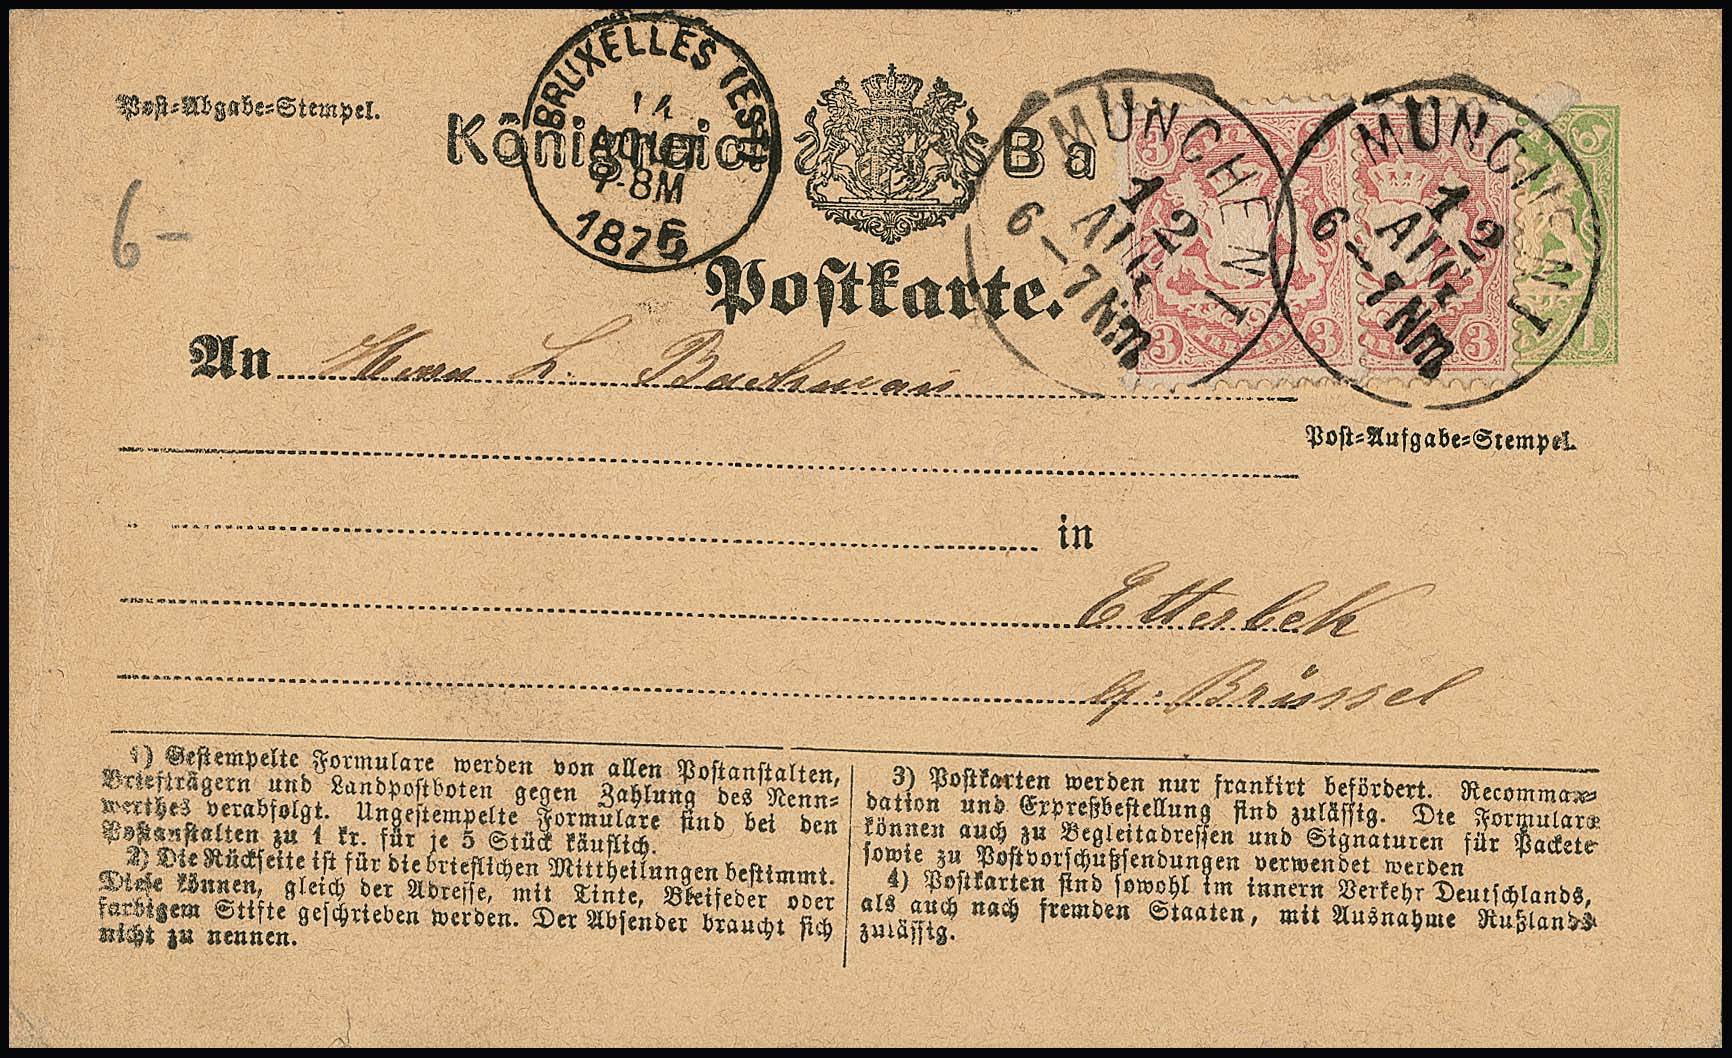 BRUXELLES (EST)
14
AOUT
7-8M
1875
Post-Abgabe-Stempel.
Königreich Ba
MÜNCHEN I
12
AUG
6-7 Nm
MÜNCHEN I
12
AUG
6-7 Nm
3 3 3 3
3 3 3 3
1
6-
Postkarte.
An Herrn L. Bachmann
Post-Aufgabe-Stempel.
in
Etterbek
b/. Brüssel
1) Gestempelte Formulare werden von allen Postanstalten,
Briefträgern und Landpostboten gegen Zahlung des Nenn-
werthes verabfolgt. Ungestempelte Formulare sind bei den
Postanstalten zu 1 kr. für je 5 Stück käuflich.
2) Die Rückseite ist für die brieflichen Mittheilungen bestimmt.
Diese können, gleich der Adresse, mit Tinte, Bleifeder oder
farbigem Stifte geschrieben werden. Der Absender braucht sich
nicht zu nennen.
3) Postkarten werden nur frankirt befördert. Recomman-
dation und Expreßbestellung sind zulässig. Die Formulare
können auch zu Begleitadressen und Signaturen für Packete
sowie zu Postvorschußsendungen verwendet werden
4) Postkarten sind sowohl im innern Verkehr Deutschlands,
als auch nach fremden Staaten, mit Ausnahme Rußlands
zulässig.